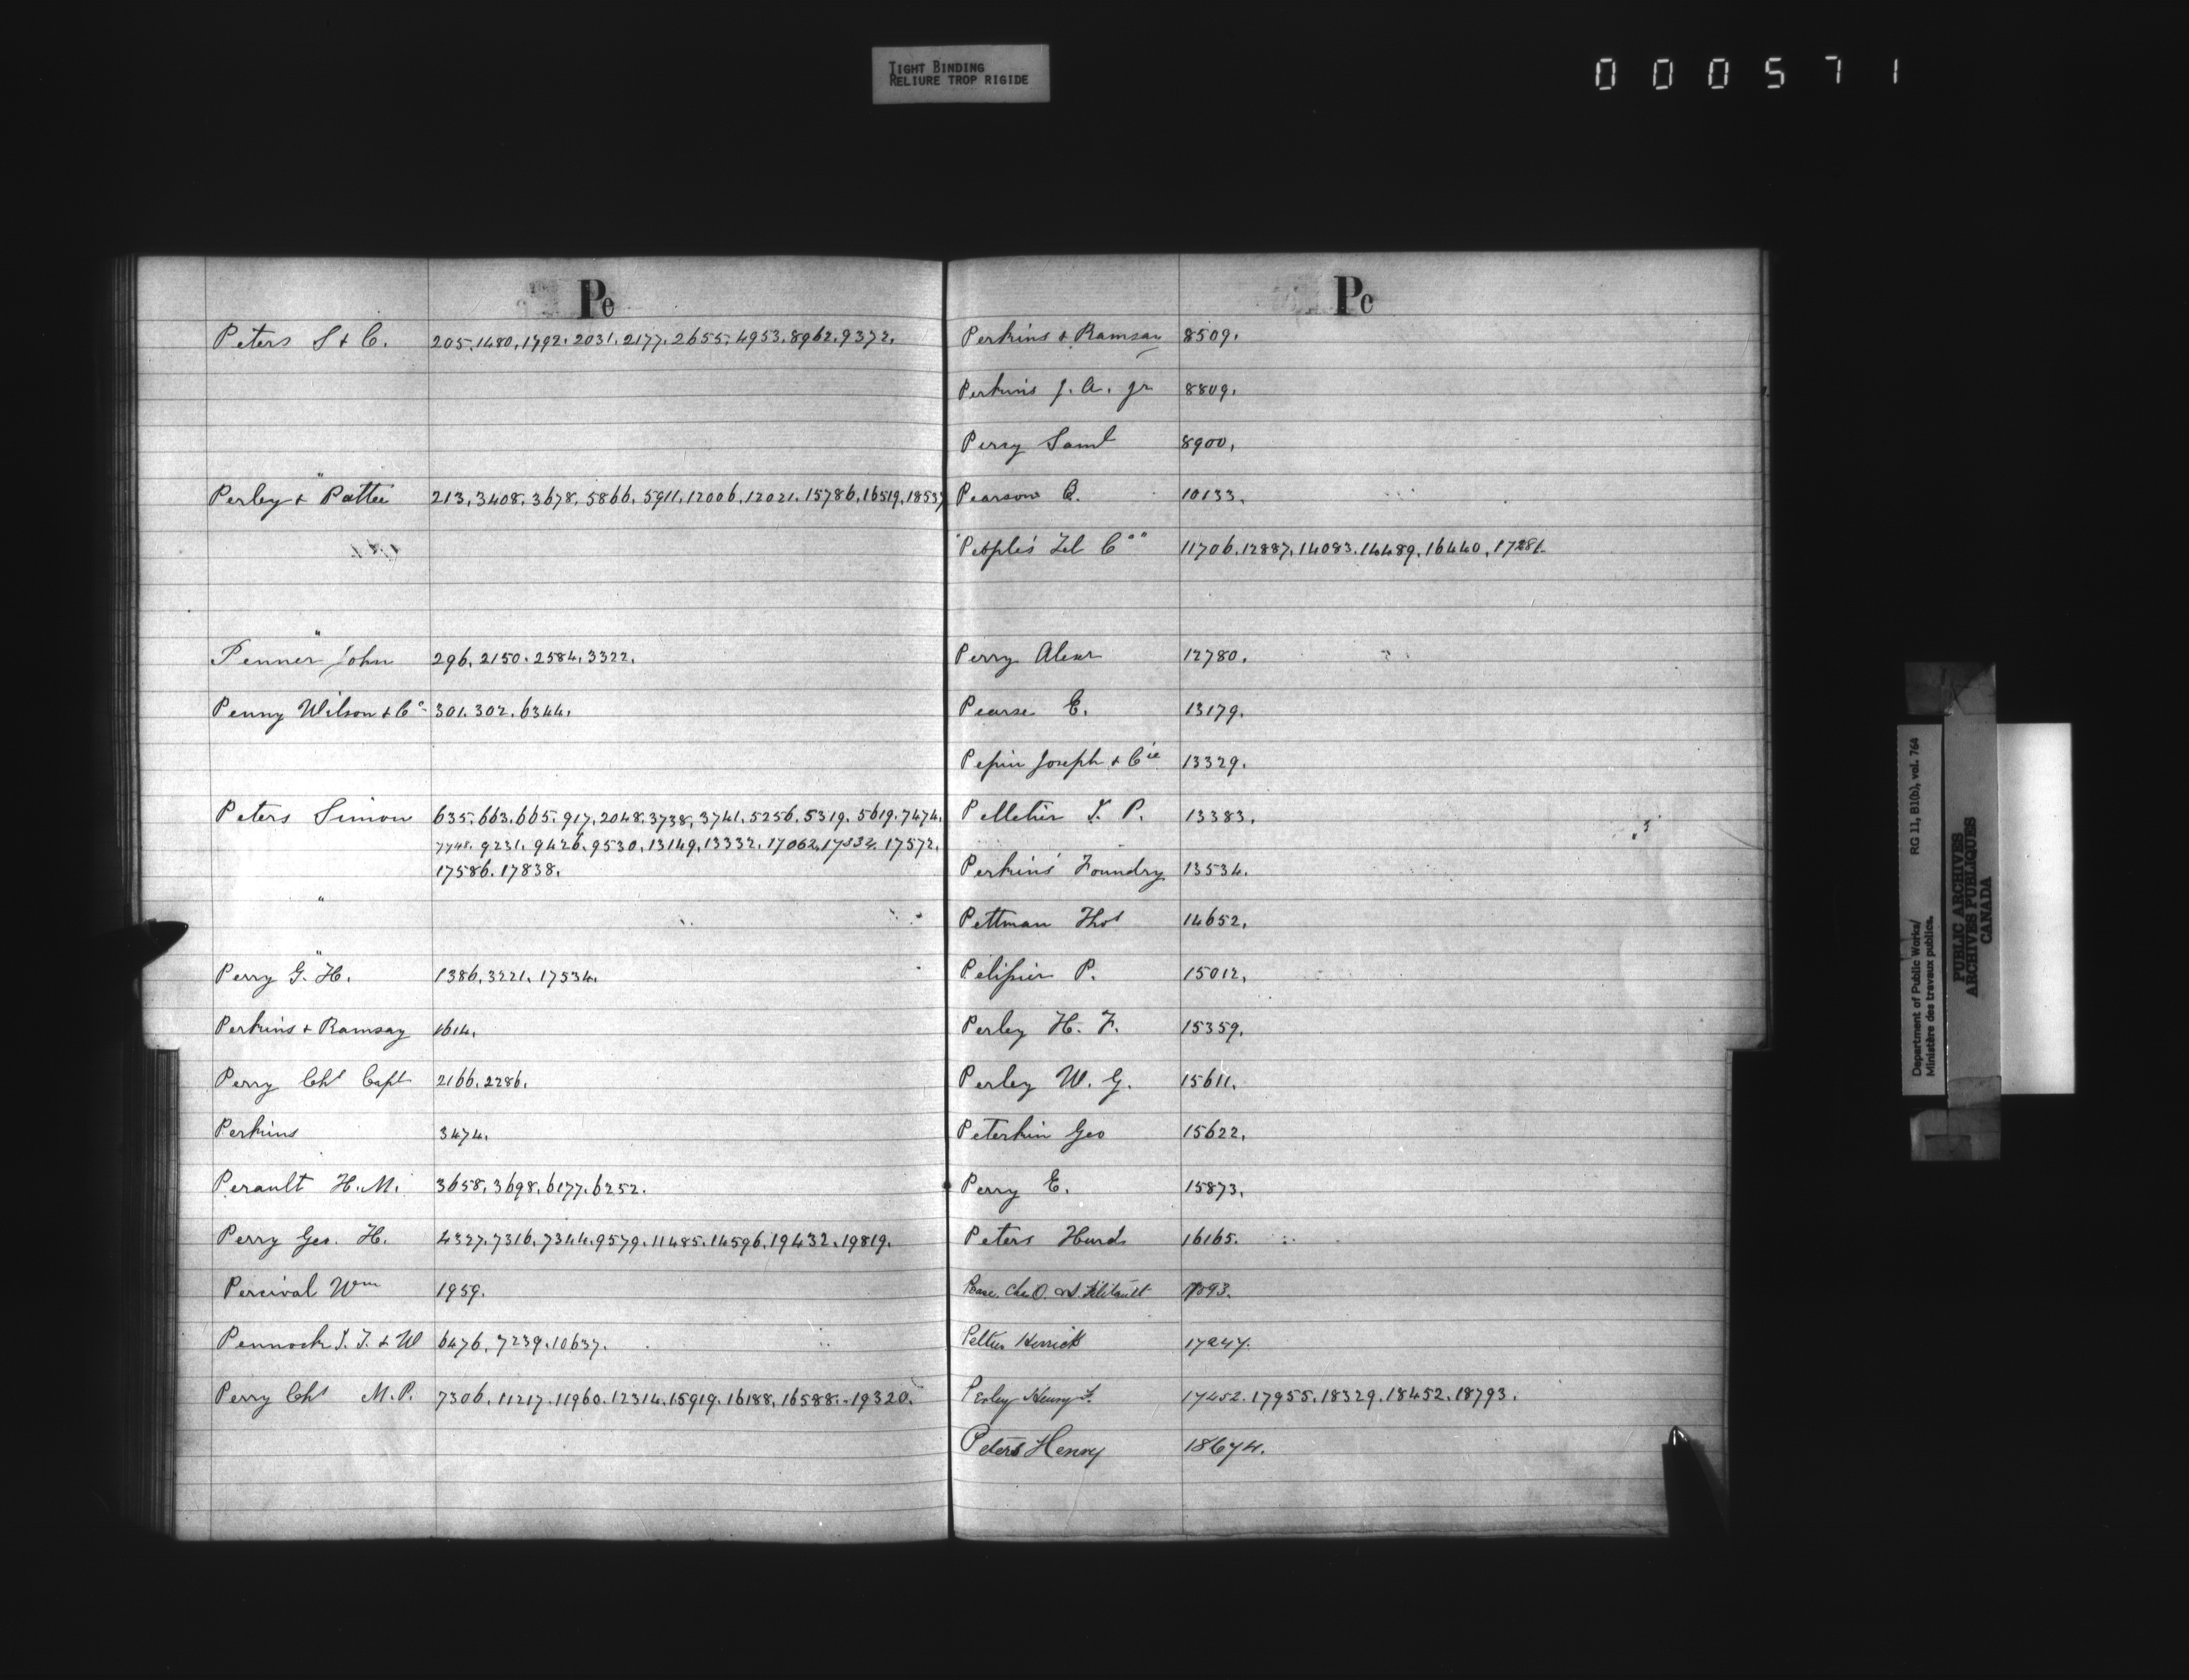 TIGHT BINDING
RELIURE TROP RIGIDE
000571
Pe
Peters S & C. 205. 1480. 1792. 2031. 2177. 2655. 4953. 8962. 9372.
Perley & Pattee 213. 3408. 3678. 5866. 5911. 12006. 12021. 15786. 16519. 18537
Penner John 296. 2150. 2584. 3322.
Penny Wilson & Co 301. 302. 6344.
Peters Simon 635. 663. 665. 917. 2048. 3738. 3741. 5256. 5319. 5619. 7474.
7748. 9231. 9426. 9530. 13149. 13332. 17062. 17534. 17572.
17586. 17838.
Perry G. H. 1386. 3221. 17534.
Perkins & Ramsay 1614.
Perry Chs Capt 2166. 2286.
Perkins 3474.
Perault H. M. 3658. 3698. 6177. 6252.
Perry Geo. H. 4327. 7316. 7344. 9579. 11485. 14596. 19432. 19819.
Percival Wm 1959.
Pennock J. T. & W 6476. 7239. 10637.
Perry Chs M. P. 7306. 11217. 11960. 12314. 15919. 16188. 16588. 19320.
Pe
Perkins & Ramsay 8509.
Perkins J. A. Jr 8809.
Perry Saml 8900.
Pearson B. 10133.
"People's Tel Co" 11706. 12887. 14083. 14489. 16440. 17281.
Perry Alexr 12780.
Pearse E. 13179.
Pepin Joseph & Cie 13329.
Pelletier J. P. 13383.
Perkins' Foundry 13534.
Pettman Thos 14652.
Pelissier P. 15012.
Perley H. F. 15359.
Perley W. G. 15611.
Peterkin Geo 15622.
Perry E. 15873.
Peters Hurds 16165.
Pease Chs O. 17093.
Herrick 17247.
Perley Henry F. 17452. 17955. 18329. 18452. 18793.
Peters Henry 18674.
Department of Public Works/ RG 11, B1(b), vol. 764
Ministère des travaux publics.
PUBLIC ARCHIVES
ARCHIVES PUBLIQUES
CANADA